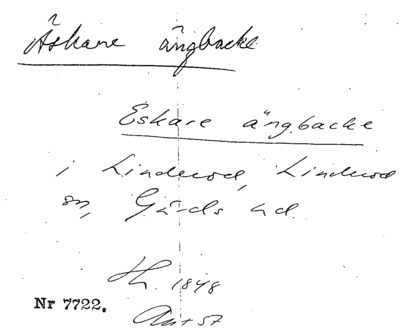 Äskare ängbacke
Eskare ängbacke
i Linderod, Linderod
sn, Gärds hd.
Hh. 1848
Nr 7722.
Ant 57